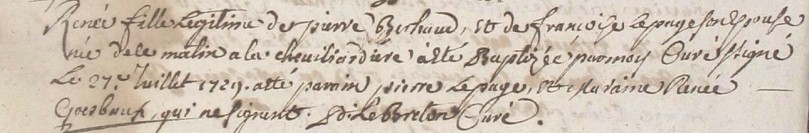 Renée fille Legitime de pierre Berhaud, et de francoise Lepage son Eppuse
née de le matin a la chevillardiere a été Baptizée par moy Curé signé
Le 27.e Juillet 1729. a été parain pierre Lepage, et Maraine Renée
qui ne signent. LeBreton Curé.